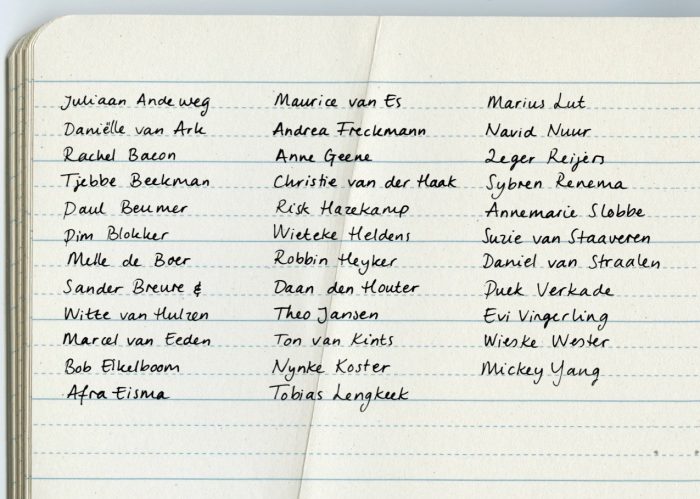 Juliaan Andeweg
Daniëlle van Ark
Rachel Bacon
Tjebbe Beekman
Daul Beumer
Dim Blokker
Melle de Boer
Sander Breure &
Witte van Hulzen
Marcel van Eeden
Bob Eikelboom
Afra Eisma
Maurice van Es
Andrea Freckmann
Anne Geene
Christie van der Haak
Risk Hazekamp
Wieteke Heldens
Robbin Heyker
Daan den Houter
Theo Jansen
Ton van Kints
Nynke Koster
Tobias Lengkeek
Marius Lut
Navid Nuur
Zeger Reijers
Sybren Renema
Annemarie Slobbe
Suzie van Staaveren
Daniel van Straalen
Puck Verkade
Evi Vingerling
Wieske Wester
Mickey Yang